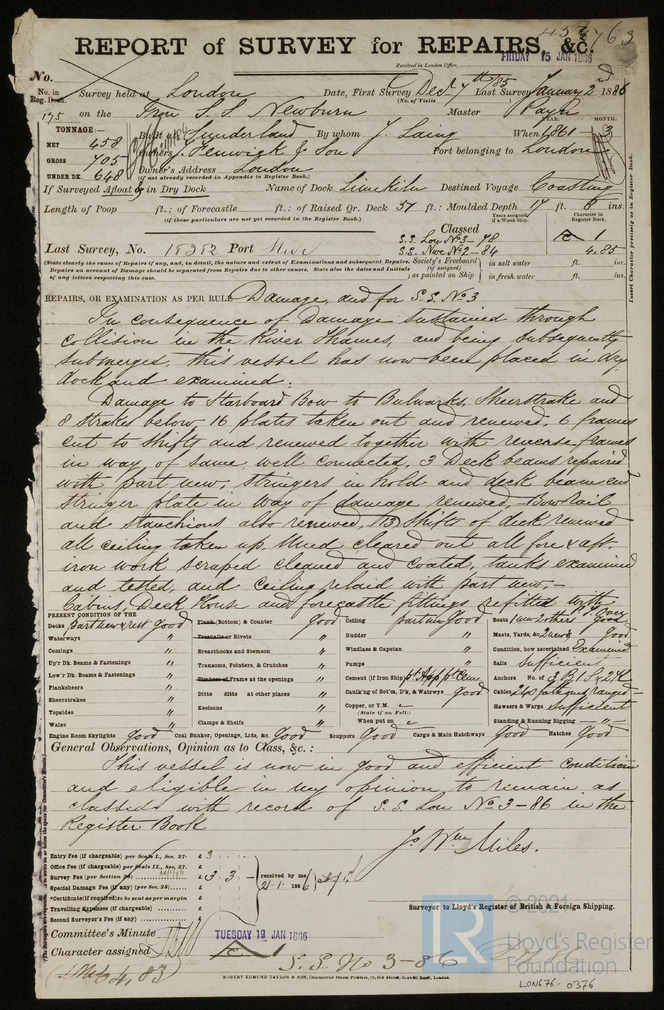 45 763
REPORT of SURVEY for REPAIRS, &c.
Received in London Office, FRIDAY 15 JAN 1886
No.
No. in Reg. Book. Survey held at London Date, First Survey Dec 7th /85 Last Survey January 2nd 1886
(No. of Visits
175 on the Iron S.S. Newburn Master Payn
TONNAGE:— Built at Sunderland By whom J. Laing When 1861 - 3
YEAR. MONTH.
NET 458
GROSS 705 Owners Fenwick & Son Port belonging to London
UNDER DK. 648 Owner's Address London
(if not already recorded in Appendix to Register Book.)
If Surveyed Afloat or in Dry Dock Name of Dock Limekiln Destined Voyage Coasting
Length of Poop ft.: of Forecastle ft.: of Raised Qr. Deck 57 ft.: Moulded Depth 17 ft. 6 ins.
(if these particulars are not yet recorded in the Register Book.)
Years assigned if a Wood Ship. Character in Register Book.
Classed
Last Survey, No. 18282 Port Nwc S.S. Lon No 3-78 1
S.S. Nwc No 2-84 4,85
(State clearly the cause of Repairs if any, and, in detail, the nature and extent of Examinations and subsequent Repairs.
Repairs on account of Damage should be separated from Repairs due to other causes. State also the dates and Initials
of any letters respecting this case.
Society's Freeboard (if assigned) as painted on Ship in salt water ft. ins.
in fresh water ft. ins.
Insert Character precisely as in Register Book.
REPAIRS, OR EXAMINATION AS PER RULE Damage, and for S.S. No 3.
In consequence of Damage sustained through
collision in the River Thames, and being subsequently
submerged, this vessel has now been placed in dry
dock and examined:
Damage to Starboard Bow to Bulwarks, Sheerstrake and
8 strakes below, 16 plates taken out and renewed, 6 frames
cut to shifts and renewed together with reverse frames
in way of same, well connected, 3 Deck beams repaired
with part new, stringers in hold and deck beam end
stringer plate in way of damage renewed, Bow rail
and stanchions also renewed, 113 shifts of deck renewed
all ceiling taken up, Mud cleared out all fore & aft.
iron work scraped cleaned and coated, tanks examined
and tested, and ceiling relaid with part new,—
Cabins, Deck House and forecastle fittings refitted with
PRESENT CONDITION OF THE
Decks part new & rest Good Flank (Bottom) & Counter Good Ceiling part new Good Boats 1 new 2 others Good
Waterways " Treenails or Rivets " Rudder " Masts, Yards, &c. Good
Comings " Breasthooks and Stemson " Windlass & Capstan " Condition, how ascertained Examined
Up'r Dk. Beams & Fastenings " Transoms, Pointers, & Crutches " Pumps " Sails Sufficient
Low'r Dk. Beams & Fastenings " Timbers of Frame at the openings " Cement (if Iron Ship) Anchors No. of 3 B 1 S & 2 K
Planksheers " Ditto ditto at other places " Caulk'ng of Bot'm, D'k, & Watrwys Good Cables ranged
Sheerstrakes " Keelsons " Copper, or Y.M. Hawsers & Warps Sufficient
(State if on Felt.)
Topsides " Clamps & Shelfs " When put on Standing & Running Rigging "
Wales "
Engine Room Skylights Good Coal Bunker, Openings, Lids, &c. Good Scuppers Good Cargo & Main Hatchways Good Hatches Good
General Observations, Opinion as to Class, &c.:
This vessel is now in good and efficient condition
and eligible in my opinion to remain as
classed with record of S.S. Lon No 3-86 in the
Register Book
Jo Wm Miles.
Entry Fee (if chargeable) per Scale I., Sec. 27. £ 3
Office Fee (if chargeable) per Scale II., Sec. 27. £
Survey Fee (per Section 28) £ 3 3 received by me 21.1.1886
Special Damage Fee (if any) (per Sec. 28) £
*Certificate (if required) to be sent as per margin £
Travelling Expenses (if chargeable) £
Second Surveyor's Fee (if any) £
Surveyor to Lloyd's Register of British & Foreign Shipping.
Committee's Minute TUESDAY 19 JAN 1886
Character assigned S.S. No 3-86
4,83
ROBERT EDMUND TAYLOR & SON, Commercial Steam Printers, 19, Old Street, Goswell Road, London.
LR
© 2021
Lloyd's Register
Foundation
LON676-0376